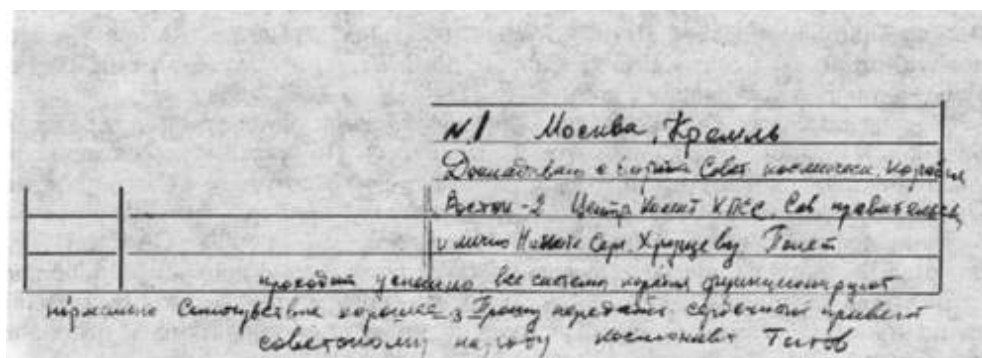 N1 Москва, Кремль
Докладываю с борта Совет. космическ. корабля
Восток-2 Центр. Комит КПСС, Сов правительству
и лично Никите Серг. Хрущеву. Полет
проходит успешно, все системы корабля функционируют
нормально Самочувствие хорошее Прошу передать сердечный привет
советскому народу космонавт Титов